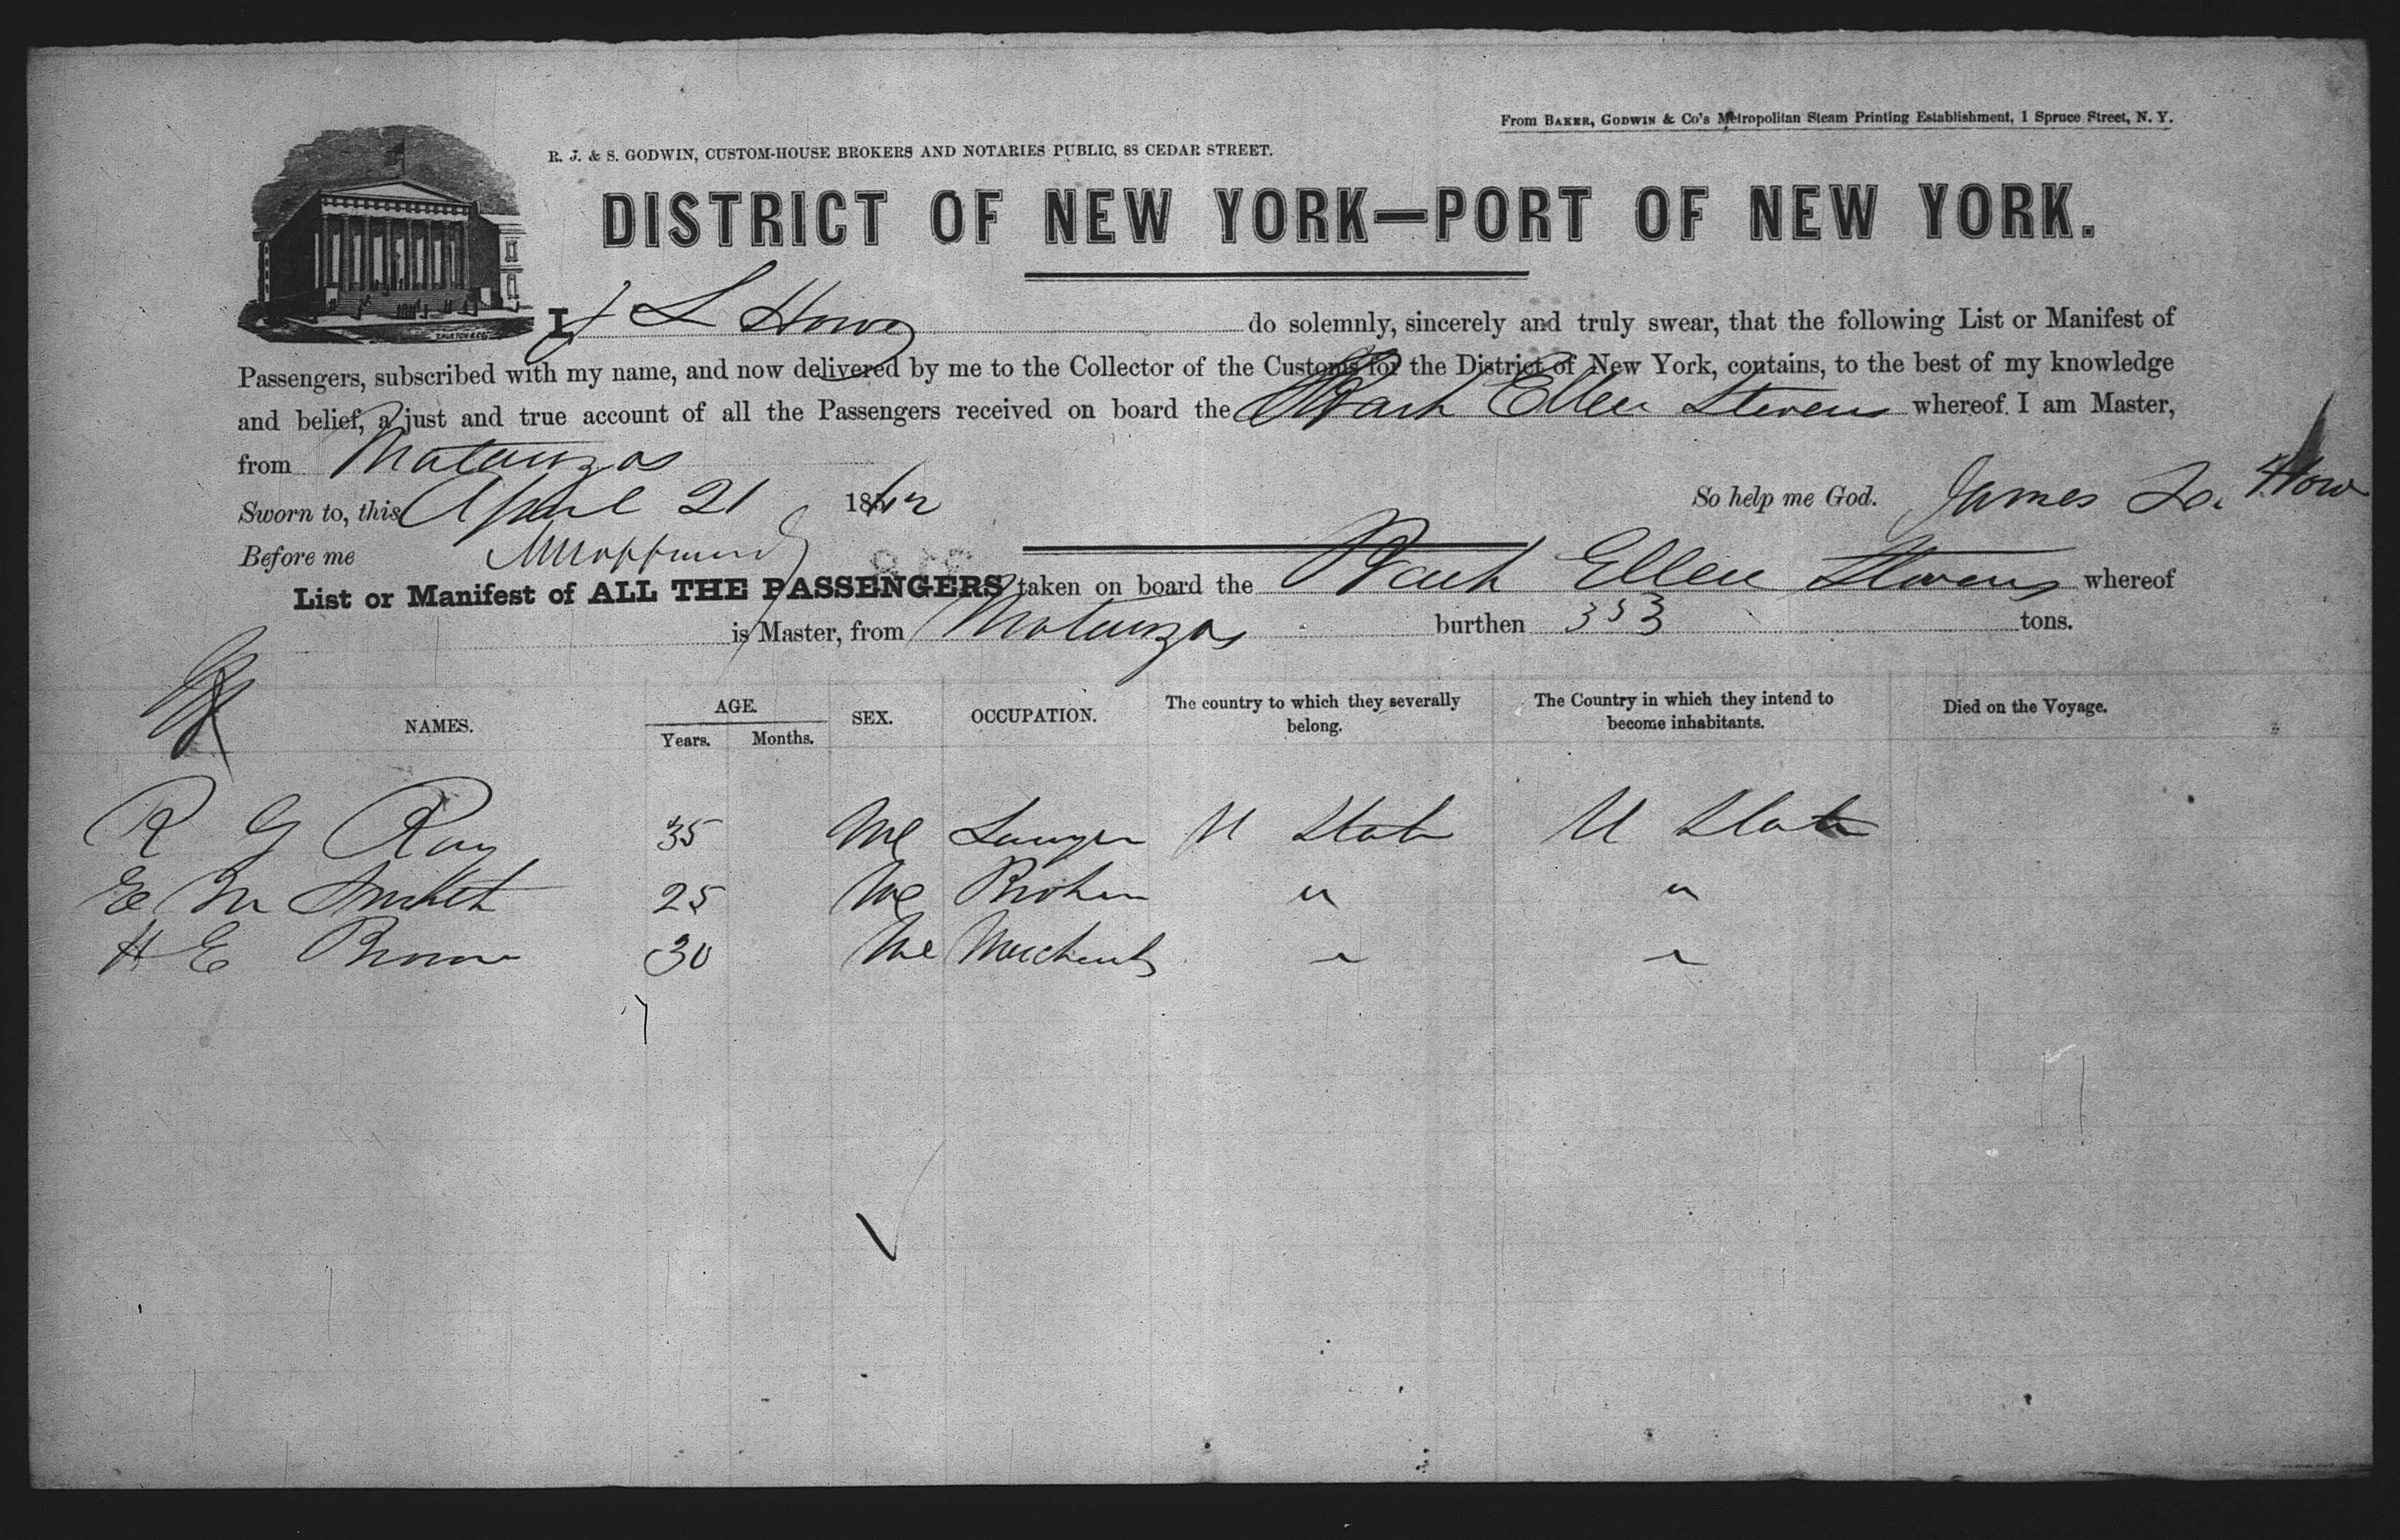 From BAKER, GODWIN & Co's Metropolitan Steam Printing Establishment, 1 Spruce Street, N. Y.
R. J. & S. GODWIN, CUSTOM-HOUSE BROKERS AND NOTARIES PUBLIC, 88 CEDAR STREET.
DISTRICT OF NEW YORK—PORT OF NEW YORK.
I, J L Howe do solemnly, sincerely and truly swear, that the following List or Manifest of
Passengers, subscribed with my name, and now delivered by me to the Collector of the Customs for the District of New York, contains, to the best of my knowledge
and belief, a just and true account of all the Passengers received on board the Bark Ellen Stevens whereof I am Master,
from Matanzas
Sworn to, this April 21 1862 So help me God. James L. How
Before me
List or Manifest of ALL THE PASSENGERS taken on board the Bark Ellen Stevens whereof
is Master, from Matanzas burthen 353 tons.
NAMES. AGE. Years. Months. SEX. OCCUPATION. The country to which they severally belong. The Country in which they intend to become inhabitants. Died on the Voyage.
R G Ray 35 Me Lawyer U State U State
E M Smith 25 Me Broker " "
H E Brown 30 Me Merchant " "